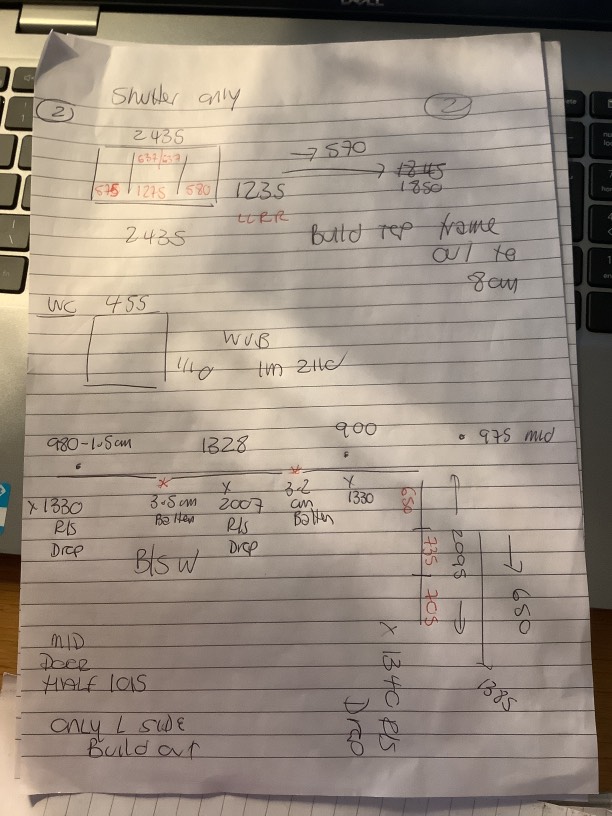 Shutter only
2
2
2435
637/637
575 1275 580
1235
LLRR
2435
→ 570
→ 1845
1850
Build rep frame
out to
8cm
WC 455
1110
980-1.5cm 1328 900 • 975 mid
* *
x 1330
R/S
Drop
3.5cm
Batten
x
2007
R/S
Drop
3.2
cm
Batten
x
1330
B/S W
650
735
705
2095
→ 650
1385
x 1340 R/S
Drop
MID
DOOR
HALF
ONLY L SIDE
Build out